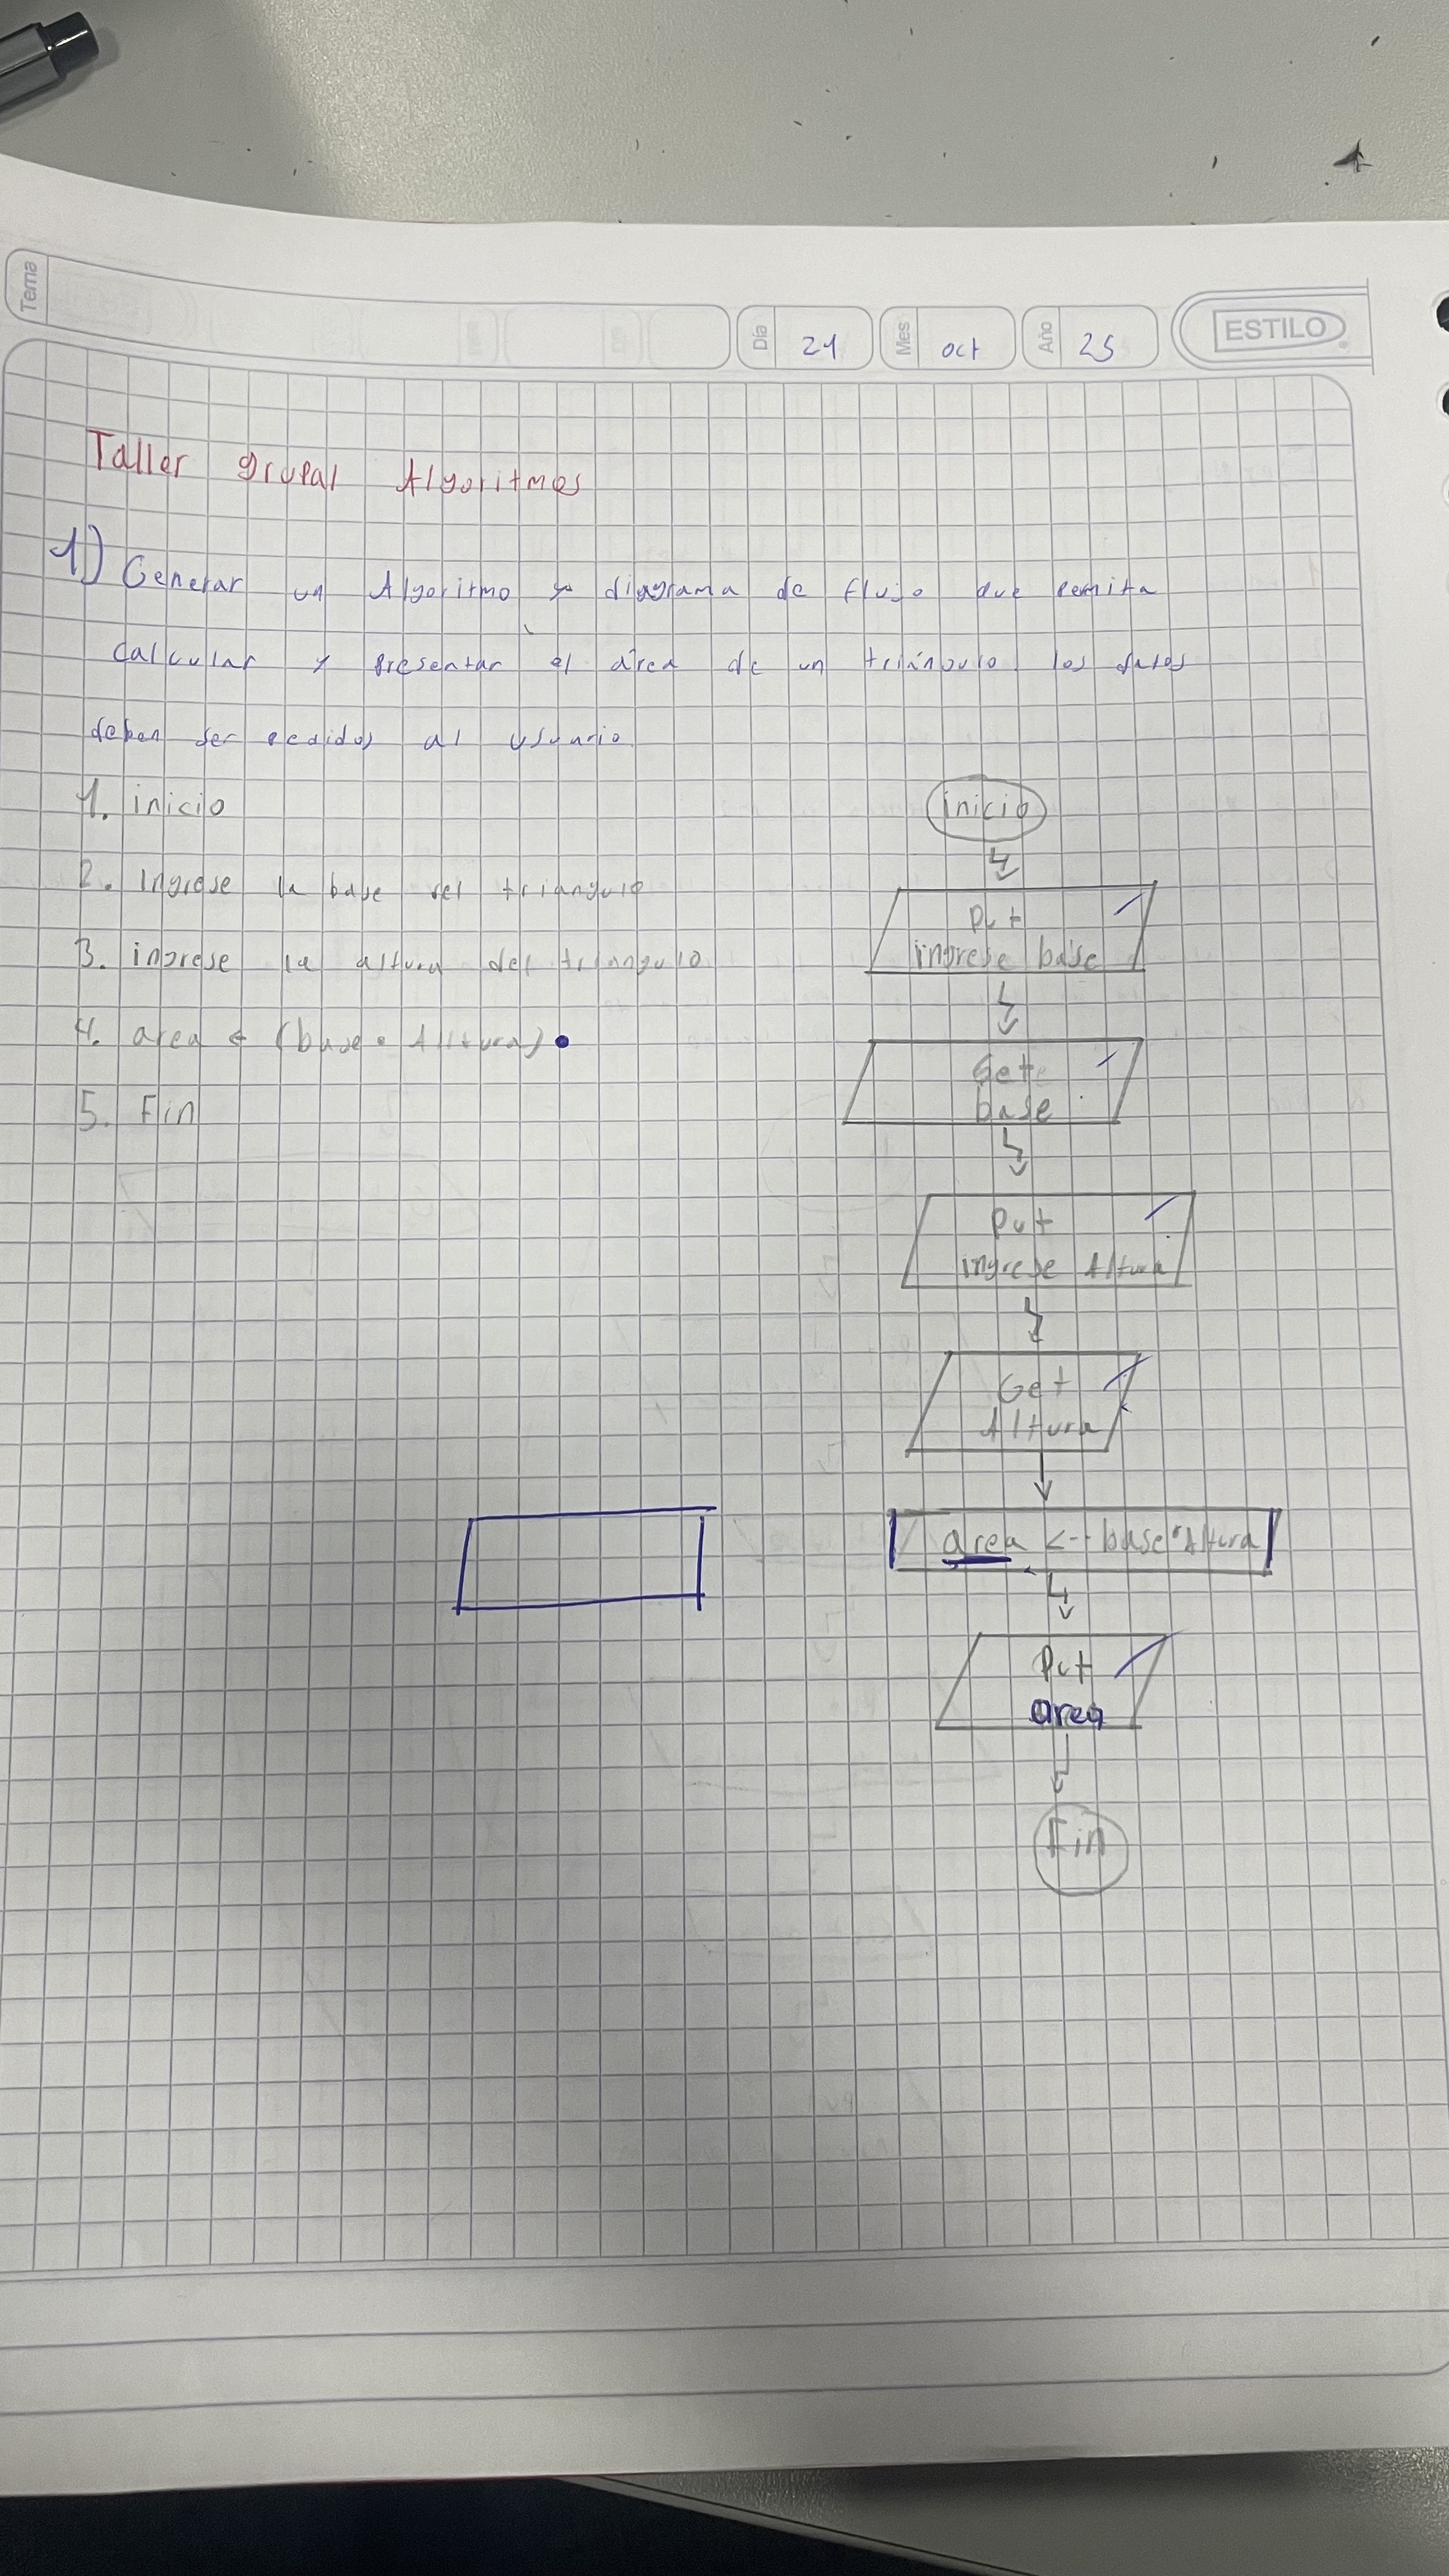 Tema
Día 21 Mes oct Año 25 ESTILO
Taller grupal Algoritmos
1) Generar un Algoritmo y diagrama de flujo que permita
calcular y presentar el área de un triángulo los datos
deben ser pedidos al usuario
1. inicio
2. Ingrese la base del triangulo
3. ingrese la altura del triangulo
4. area ← (base * Alltura)
5. Fin
inicio
Put
ingrese base
Get
base
Put
ingrese Altura
Get
Altura
area <-- base * Altura
Put
area
Fin